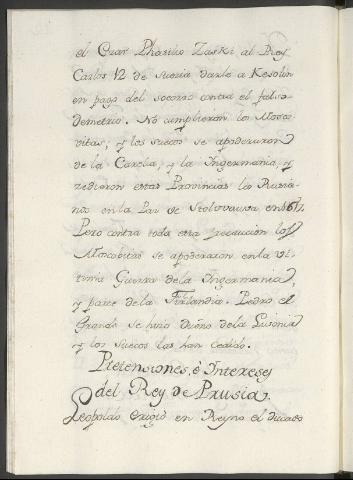 el Czar Phasilio Zaski al Rey
Carlos 12 de Suecia darle a Kesolin
en pago del socorro contra el falso
demetrio. No cumplieron los Mosco
vitas; y los suecos se apoderaron
de la Carelia, y la Ingermania, y
cedieron estas Provincias los Rusia
nos en la Paz de Stolvauva en 1617.
Pero contra toda esta los
Moscobitas se apoderaron en la ul
tima Guerra de la Ingermania,
y parte de la Finlandia. Pedro el
Grande se hizo dueño de la Livonia
y los suecos las han cedido.
Pretensiones, è Intereses
del Rey de Prusia.
Leopoldo erigiò en Reyno el ducado